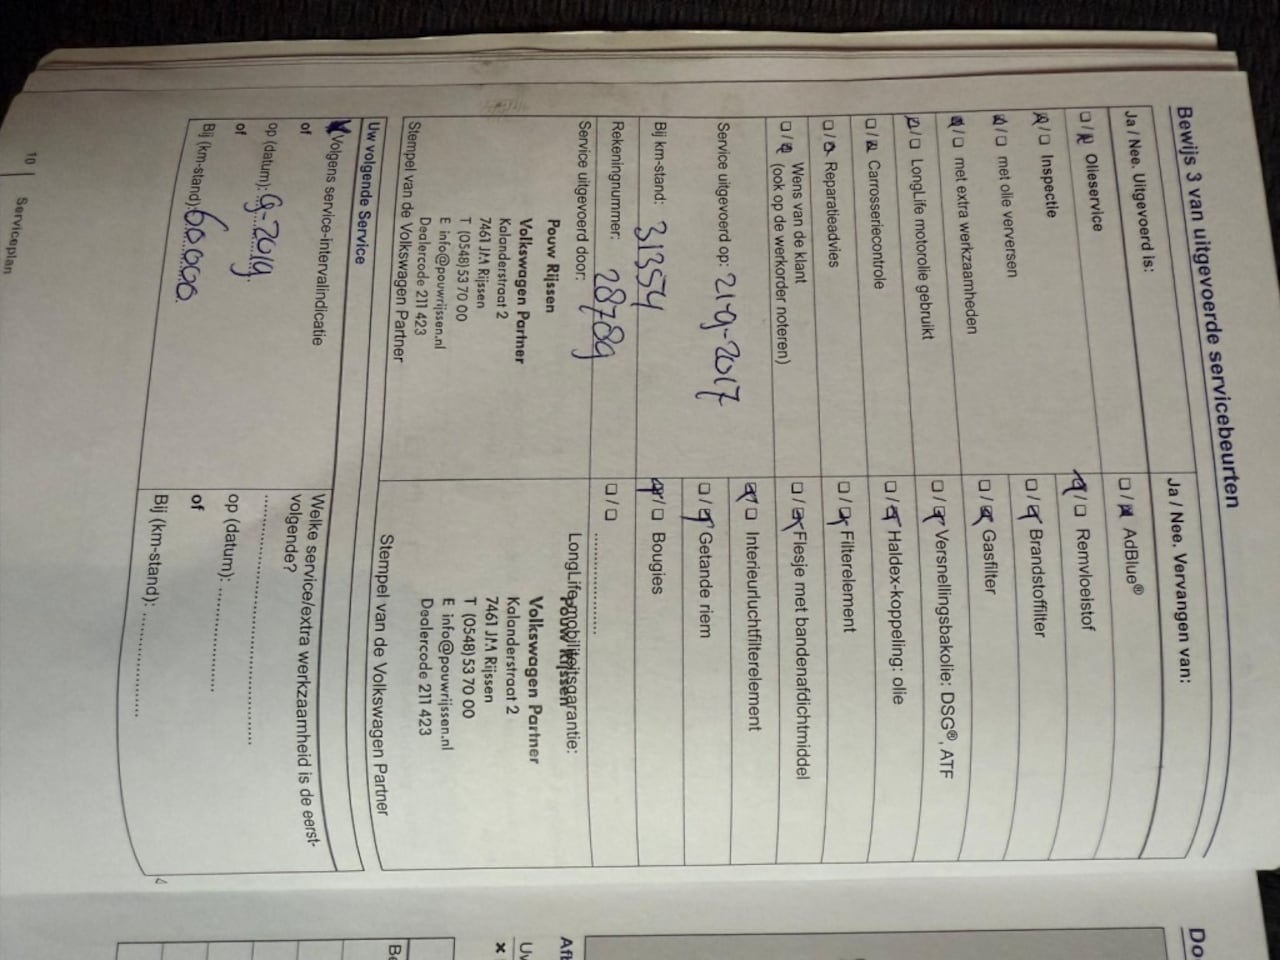 Bewijs 3 van uitgevoerde servicebeurten
Ja / Nee. Uitgevoerd is:
☐/☒ Olieservice
☒/☐ Inspectie
☒/☐ met olie verversen
☒/☐ met extra werkzaamheden
☒/☐ LongLife motorolie gebruikt
☐/☒ Carrosseriecontrole
☐/☒ Reparatieadvies
☐/☒ Wens van de klant
(ook op de werkorder noteren)
Service uitgevoerd op: 21-9-2017
Bij km-stand: 31354
Rekeningnummer: 28789
Service uitgevoerd door:
Pouw Rijssen
Volkswagen Partner
Kalanderstraat 2
7461 JM Rijssen
T (0548) 53 70 00
E info@pouwrijssen.nl
Dealercode 211 423
Stempel van de Volkswagen Partner
Ja / Nee. Vervangen van:
☐/☒ AdBlue®
☒/☐ Remvloeistof
☐/☒ Brandstoffilter
☐/☒ Gasfilter
☐/☒ Versnellingsbakolie: DSG®, ATF
☐/☒ Haldex-koppeling: olie
☐/☒ Filterelement
☐/☒ Flesje met bandenafdichtmiddel
☒/☐ Interieurluchtfilterelement
☐/☒ Getande riem
☒/☐ Bougies
☐/☐ ....................
LongLife-mobiliteitsgarantie:
Pouw Rijssen
Volkswagen Partner
Kalanderstraat 2
7461 JM Rijssen
T (0548) 53 70 00
E info@pouwrijssen.nl
Dealercode 211 423
Stempel van de Volkswagen Partner
Uw volgende Service
☒ Volgens service-intervalindicatie
of
op (datum): 9-2019
of
Bij (km-stand): 60.000
Welke service/extra werkzaamheid is de eerst-
volgende?
........................................
op (datum): ....................
of
Bij (km-stand): ....................
10
Serviceplan